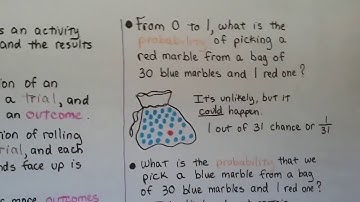 s an activity
and the results
tion of an
a trial, and
an outcome.
tion of rolling
trial, and each
nds face up is
more outcomes
• From 0 to 1, what is the
probability of picking a
red marble from a bag of
30 blue marbles and 1 red one?
It's unlikely, but it
could happen.
1 out of 31 chance or 1/31
• What is the probability that we
pick a blue marble from a bag
of 30 blue marbles and 1 red one?